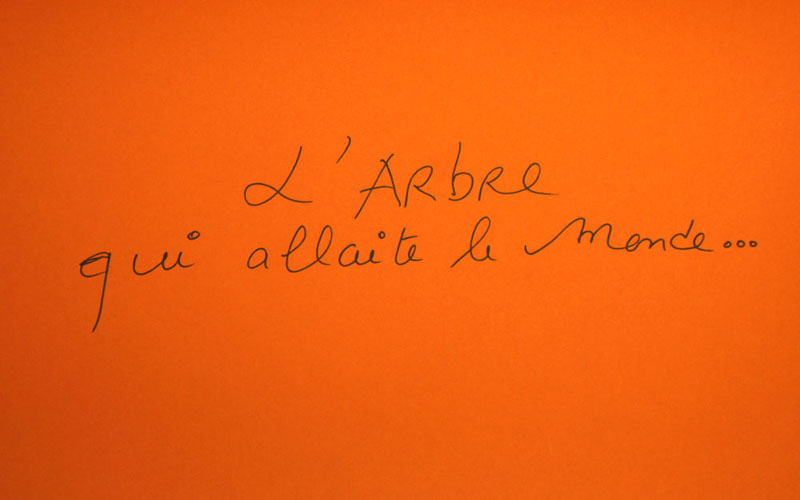 L'ARbRe
qui allaite le monde...